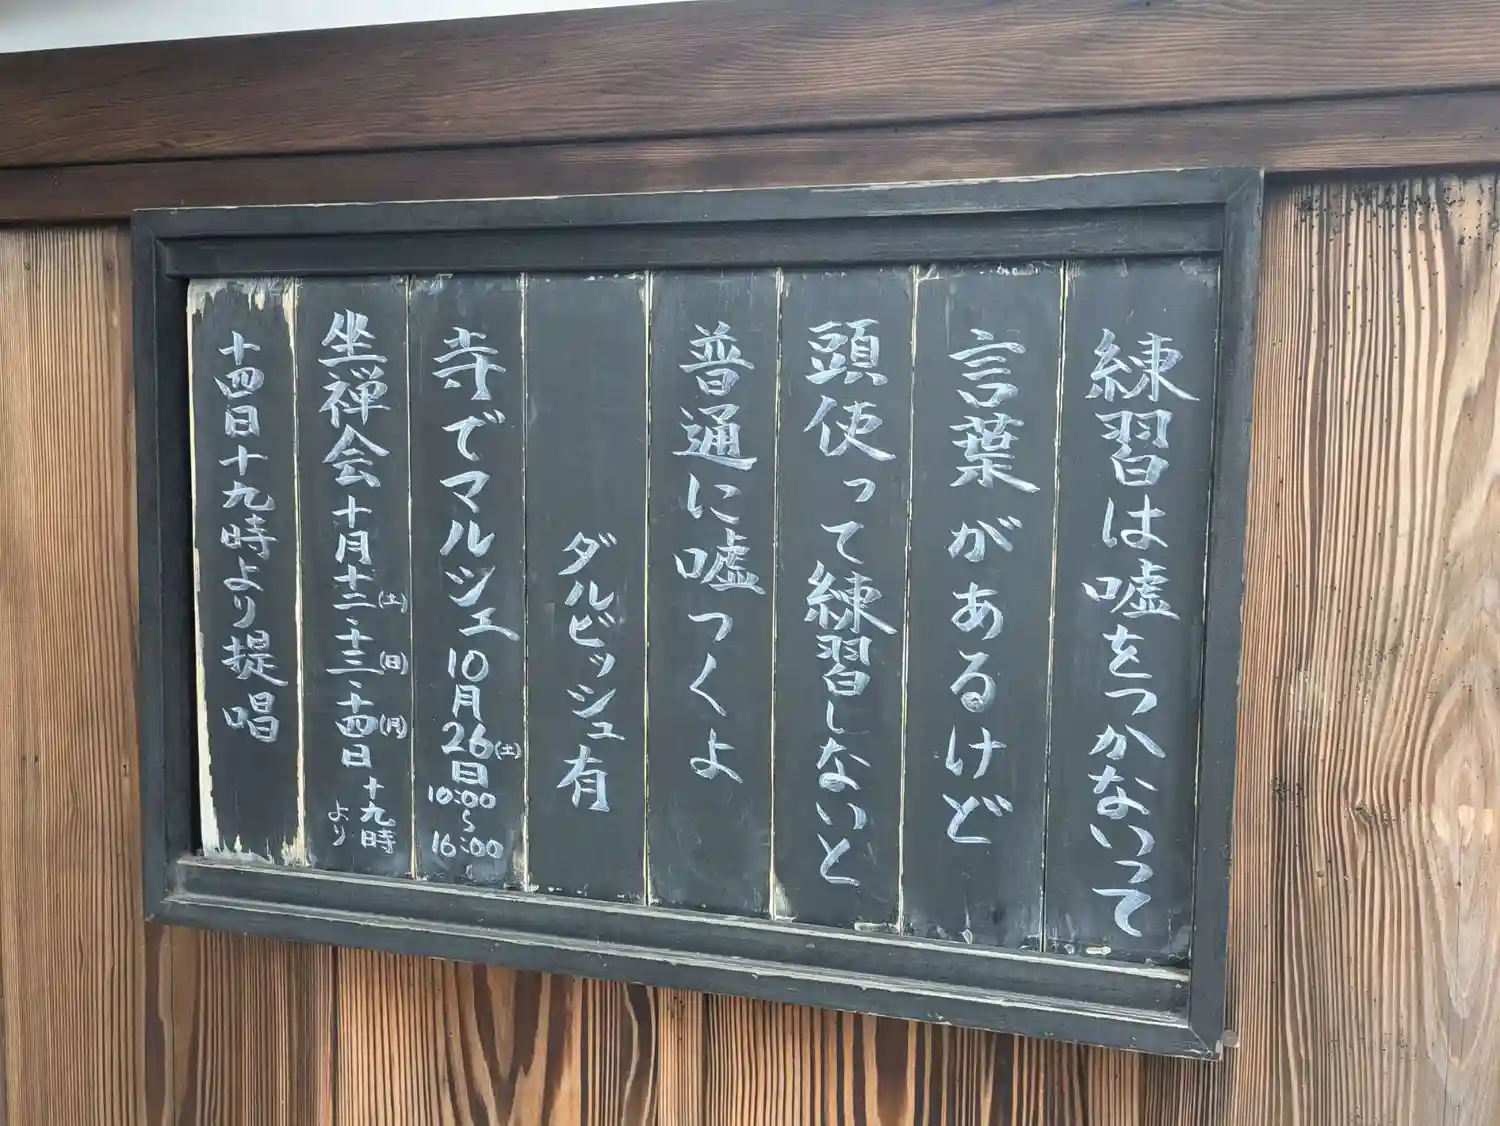 練習は嘘をつかないって
言葉があるけど
頭使って練習しないと
普通に嘘つくよ
ダルビッシュ有
寺でマルシェ 10月26日(土) 10:00～16:00
坐禅会 十月十二(土)・十三(日)・十四日(月) 十九時より
十四日十九時より提唱